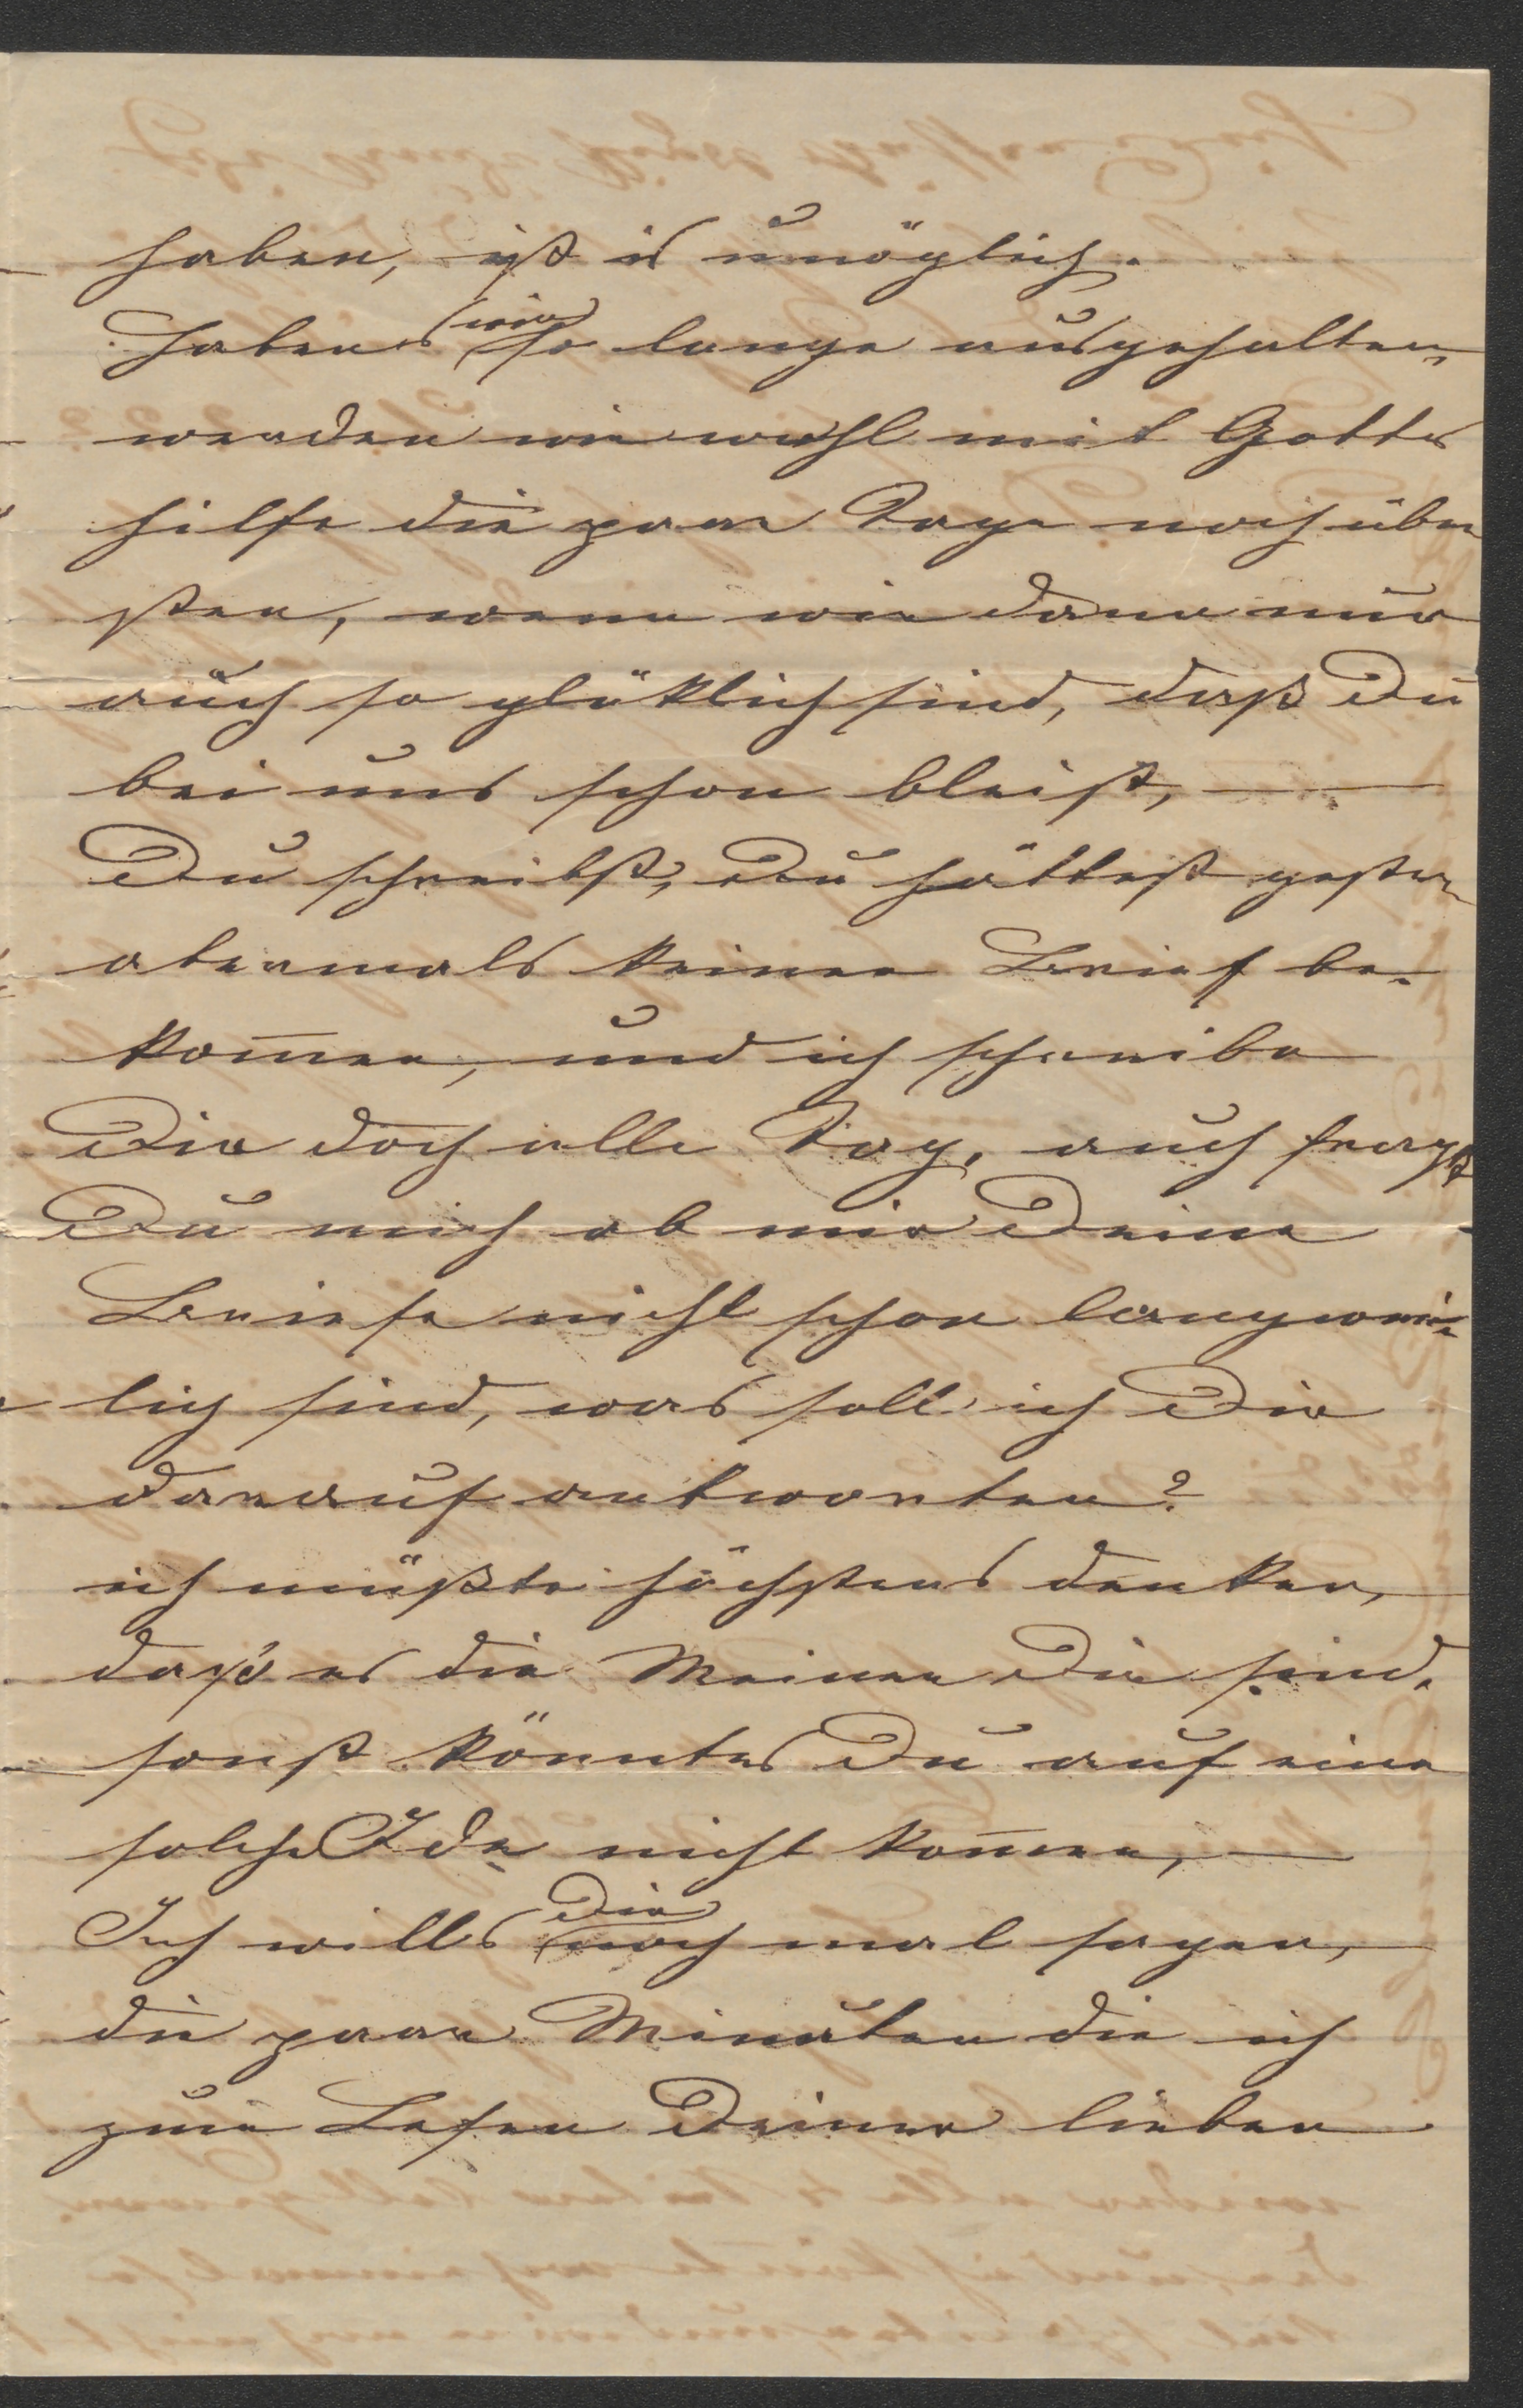 haben, ist es unmöglich.
Haben's wir so lange ausgehalten,
werden wir wohl mit Gottes
hilfe die paar Tage noch über
sten, wenn wir dann nur
auch so glüklich sind, daß Du
bei uns schon bleist, —
Du schreibst, Du hättest gestern
abermals keinen Brief be-
kom̄en, und ich schreibe
Dir doch alle Tag, auch fragst
Du mich ob mir Deine
Briefe nicht schon langwei-
lig sind, was soll ich Dir
darauf antworten?
ich müßte höchstens denken,
daß es die Meinen Dir sind,
sonst köntes Du auf eine
solche Ide nicht kom̄en, —
Ich will's Dir noch mal sagen,
die paar Minuten die ich
zum Lesen Deiner lieben